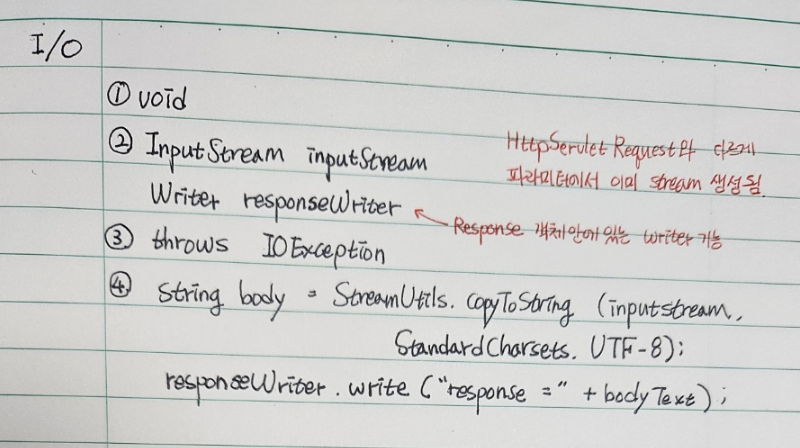 I/O
① void
② InputStream inputStream
Writer responseWriter
HttpServletRequest와 다르게
파라미터에서 이미 stream 생성됨.
← Response 객체 안에 있는 writer 기능
③ throws IOException
④ String body = StreamUtils.copyToString (inputstream,
StandardCharsets. UTF-8);
responseWriter.write ("response =" + bodyText);